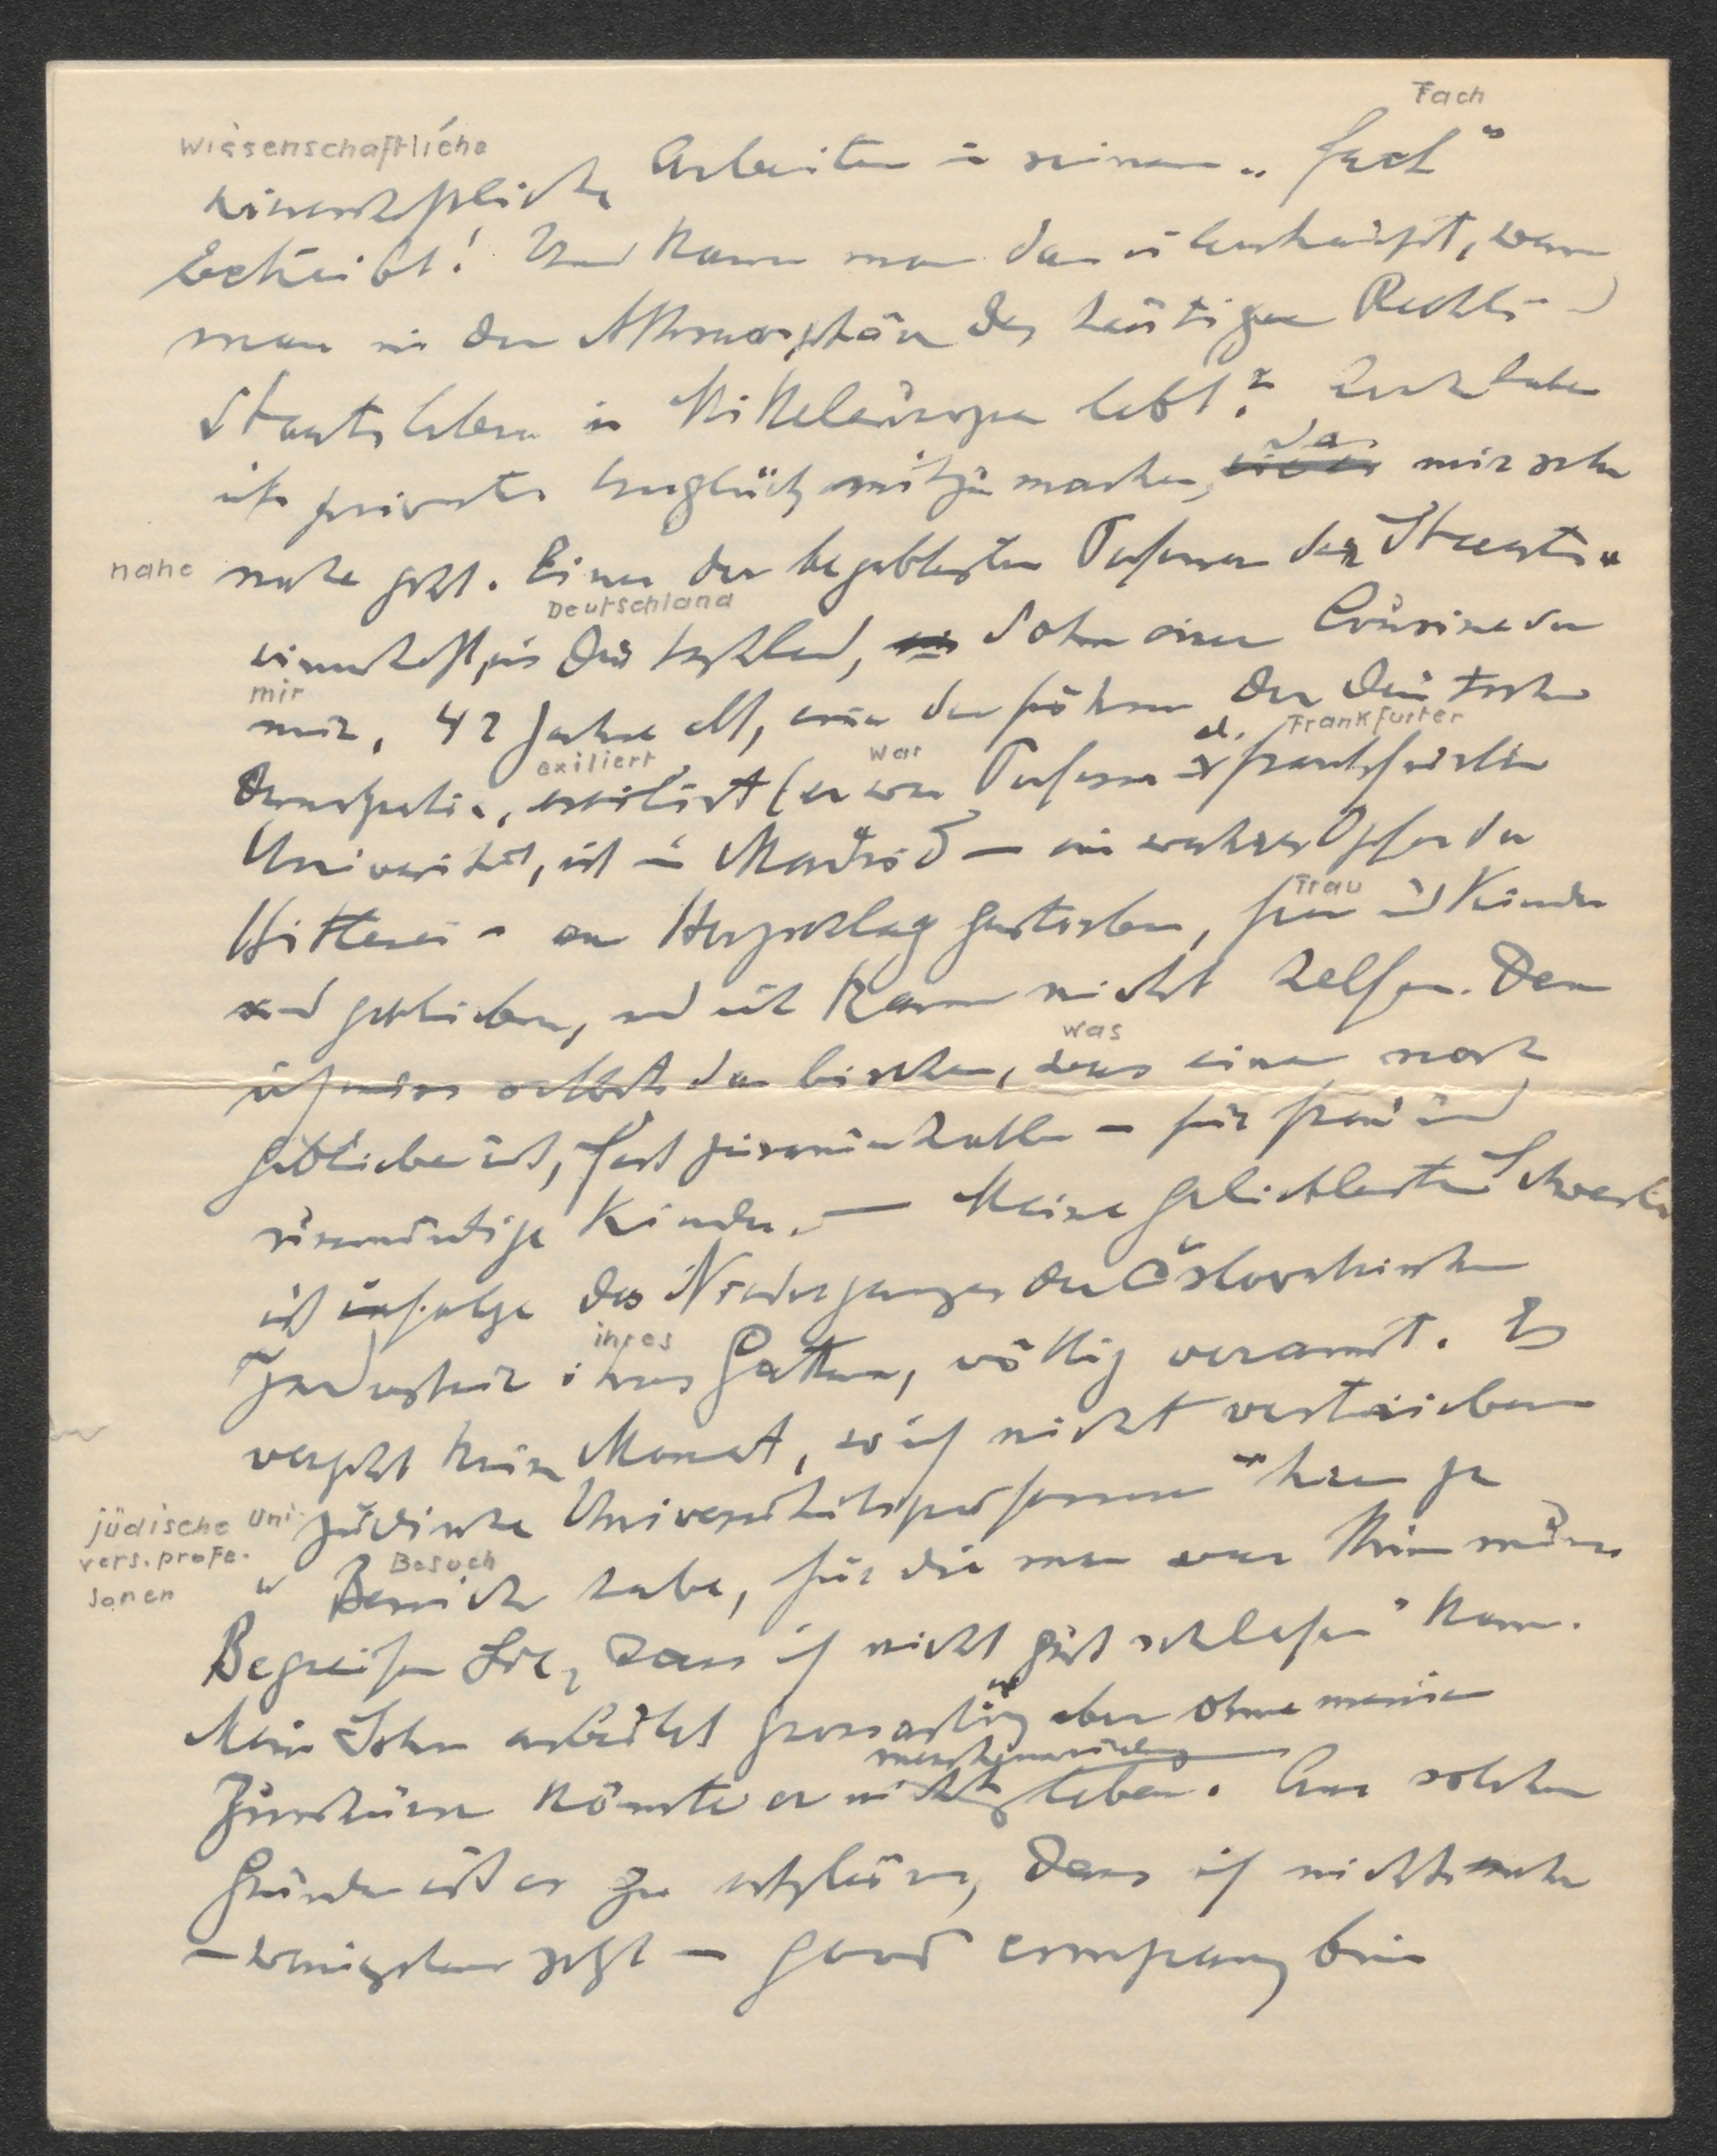 Fach
wissenschaftliche
wissenschaftliche Arbeiten in seinem „Fach"
betreibt! Und kann man das überhaupt, wenn
man in der Atmosphäre des heutigen Rechts-
Staatslebens in Mitteleuropa lebt? Auch habe
ich privates Unglück mitzumachen, das mir sehr
nahe
nahe geht. Einer der begabtesten Professoren der Staats-
Deutschland
wissenschaft, in Deutschland, Sohn einer Cousine von
mir
mir, 42 Jahre alt, einer der Führer der deutschen
exiliert war d. Frankfurter
Demokratie, exiliert (er war Professor d. Frankfurter
Universität, ist in Madrid – ein wahres Opfer der
Frau
Hitlerei – an Herzschlag gestorben, Frau und Kinder
sind geblieben, und ich kann nicht helfen. Denn
was
ich muss selbst das bischen, was einem noch
geblieben ist, fest zusammenhalten – für Frau und
unmündige Kinder. – Meine geliebteste Schwester
ist infolge des Niederganges der Čslovakischen
ihres
Industrie ihres Gatten, völlig verarmt. Es
vergeht kein Monat, wo ich nicht vertriebene
jüdische Uni-
vers. profe-
soren
jüdische Universitätsprofessoren hier zu
Besuch
Besuch habe, für die man was thun müsse.
Begreifen Sie, dass ich nicht „gut schlafen" kann.
Mein Sohn arbeitet grossartig, aber ohne meine
menschenwürdig
Zuschüsse könnte er nicht leben. Aus solchen
Gründen ist es zu erklären, dass ich nicht mehr
– wenigstens jetzt – good company bin